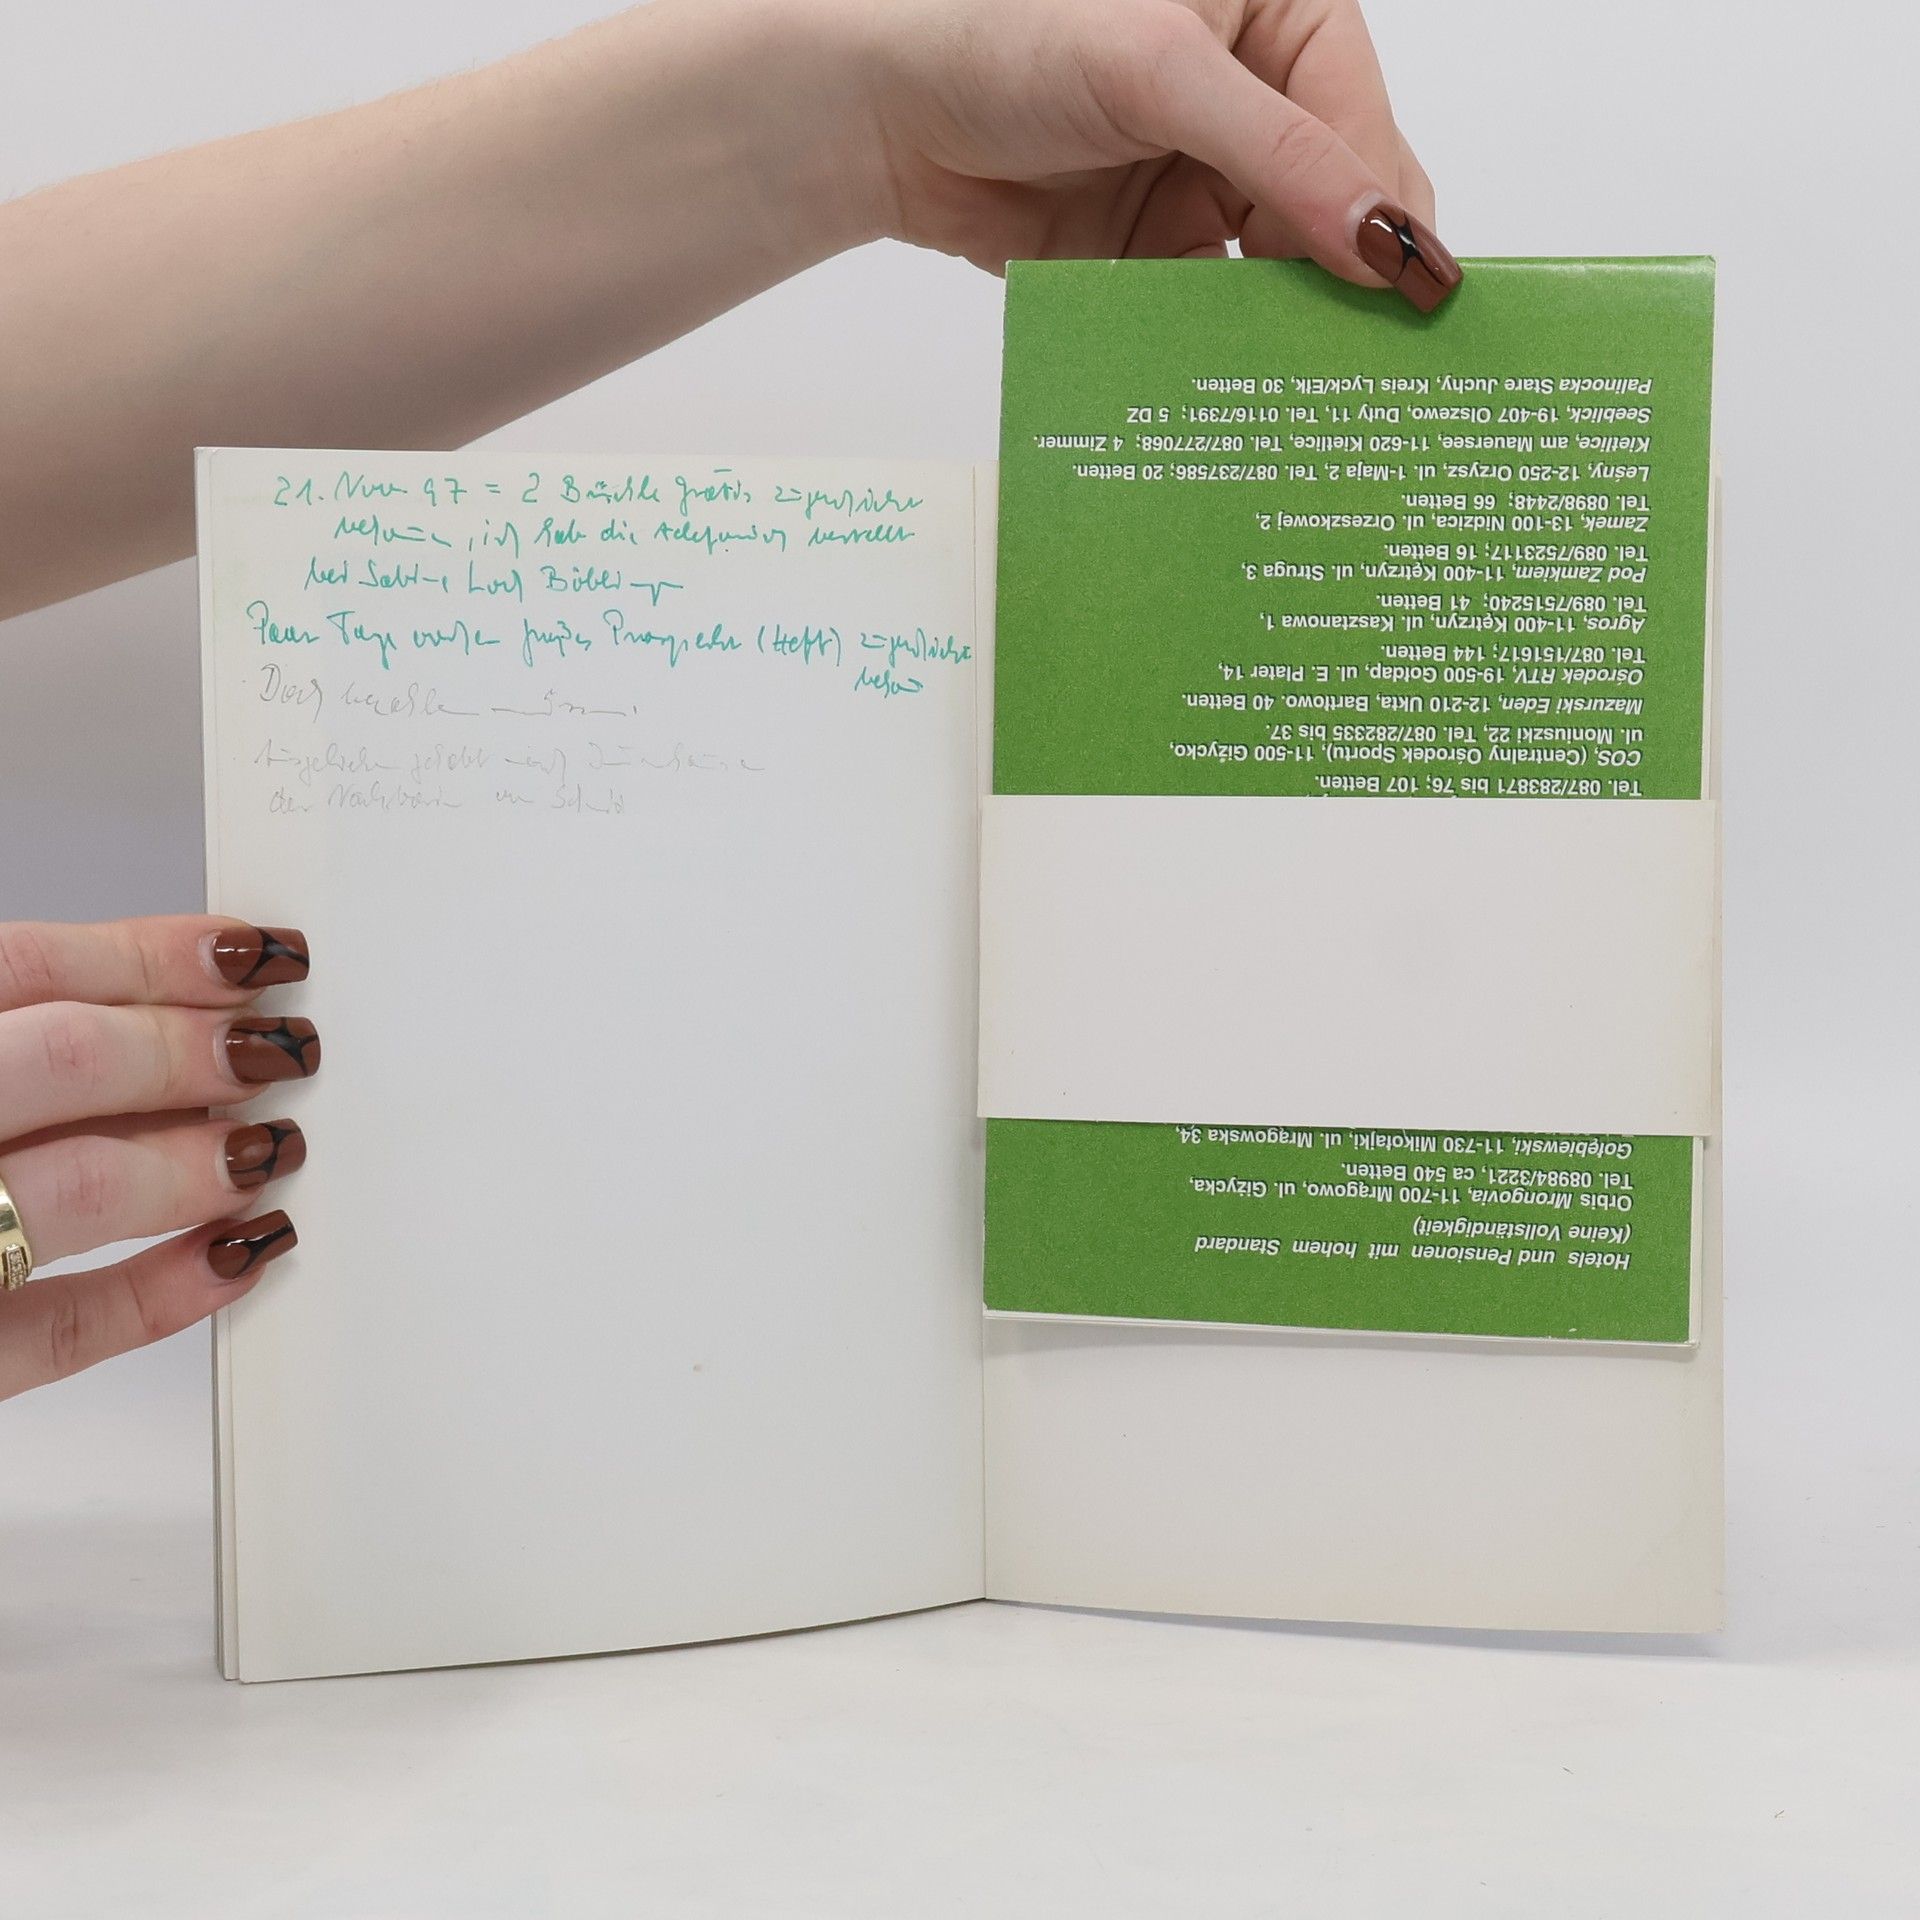 21. Nov 97 = 2 Büchle gratis zugeschickt
bekommen, ich hab die telefonisch bestellt
bei Sabine Loch Böblingen
Paar Tage vorher großes Prospekt (Heft) zugeschickt
bekom
Doch bezahlen müssen.
der Nachbarin
Hotels und Pensionen mit hohem Standard
(Keine Vollständigkeit)
Orbis Mrongovia, 11-700 Mrągowo, ul. Giżycka,
Tel. 08984/3221, ca 540 Betten.
Gołębiewski, 11-730 Mikołajki, ul. Mrągowska 34,
Tel. 087/283871 bis 76; 107 Betten.
COS, (Centralny Ośrodek Sportu), 11-500 Giżycko,
ul. Moniuszki 22, Tel. 087/282335 bis 37.
Mazurski Eden, 12-210 Ukta, Bartłowo. 40 Betten.
Ośrodek RTV, 19-500 Gołdap, ul. E. Plater 14,
Tel. 087/151617; 144 Betten.
Agros, 11-400 Kętrzyn, ul. Kasztanowa 1,
Tel. 089/7515240; 41 Betten.
Pod Zamkiem, 11-400 Kętrzyn, ul. Struga 3,
Tel. 089/7523117; 16 Betten.
Zamek, 13-100 Nidzica, ul. Orzeszkowej 2,
Tel. 0898/2448; 66 Betten.
Leśny, 12-250 Orzysz, ul. 1-Maja 2, Tel. 087/237586; 20 Betten.
Kietlice, am Mauersee, 11-620 Kietlice, Tel. 087/277068; 4 Zimmer.
Seeblick, 19-407 Olszewo, Duty 11, Tel. 0116/7391; 5 DZ
Palinocka Stare Juchy, Kreis Lyck/Ełk, 30 Betten.